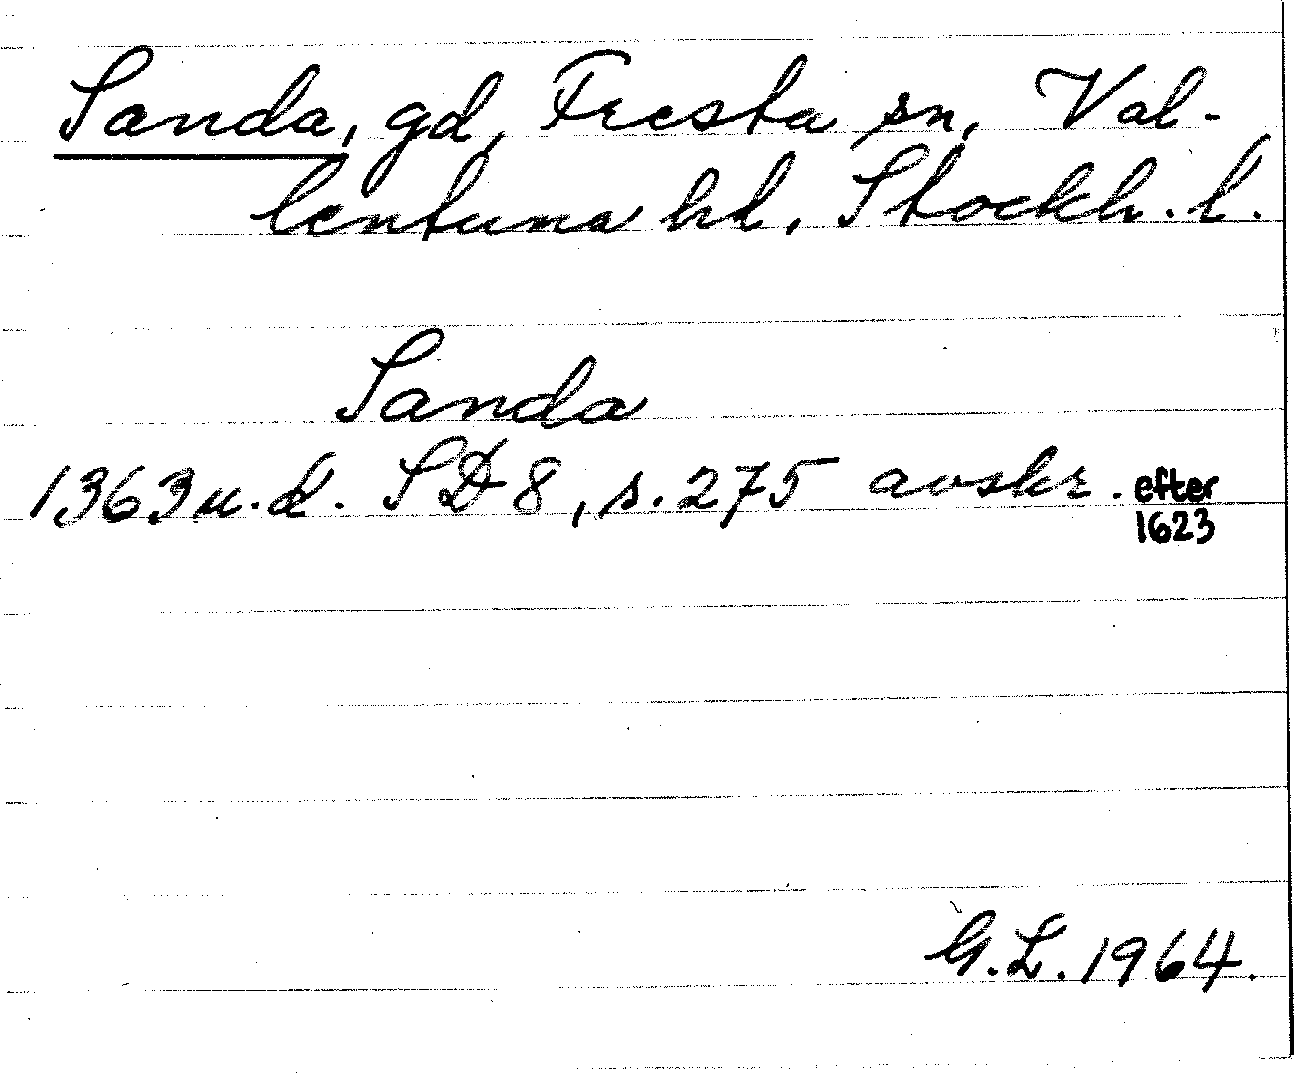 Sanda, gd, Fresta sn, Val-
lentuna hd, Stockh. l.
Sanda
1363 u.d. SD 8, s. 275 avskr. efter
1623
G.L. 1964.